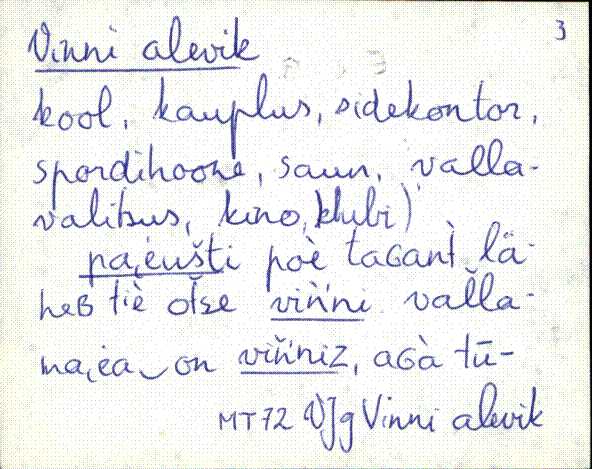 3
Vinni alevik
kool, kauplus, sidekontor,
spordihoone, saun, valla-
valitsus, kino, klubi)
pa͔i̯eušti poè taGant̀ lä-
heB tiè ot̆se viň́ni valla-
ma͔i̯a on viň́niz, aGà tū-
MT 72 VJg Vinni alevik